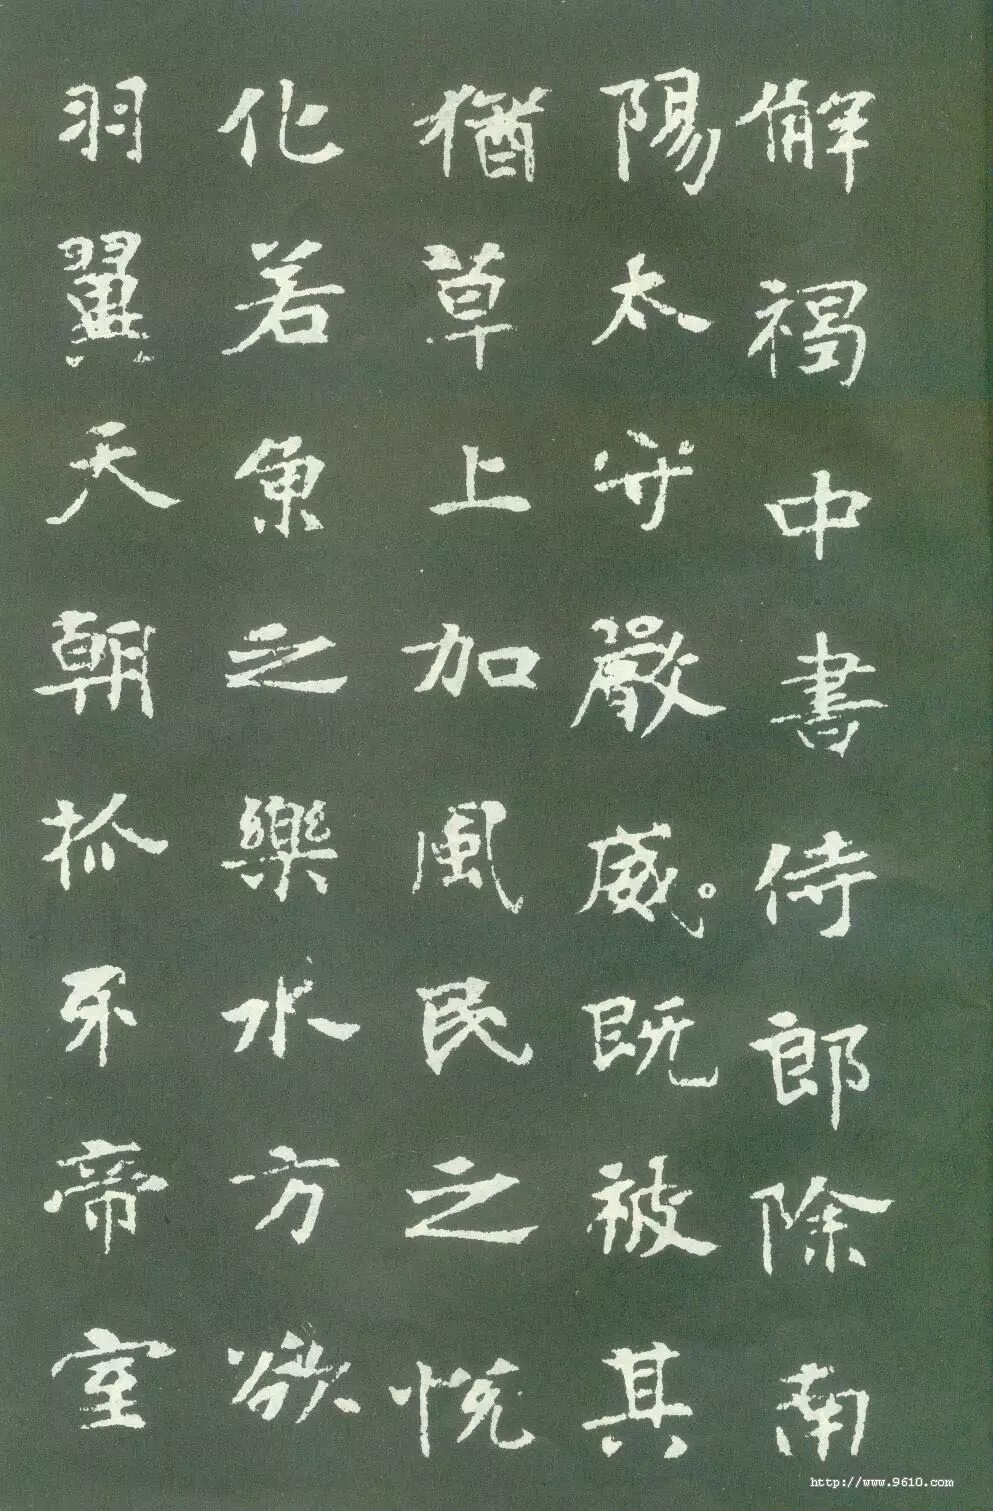 解褐中書侍郎除南
陽太守嚴威既被其
猶草上加風民之悅
化若魚之樂水方欲
羽翼天朝抓牙帝室
http://www.9610.com